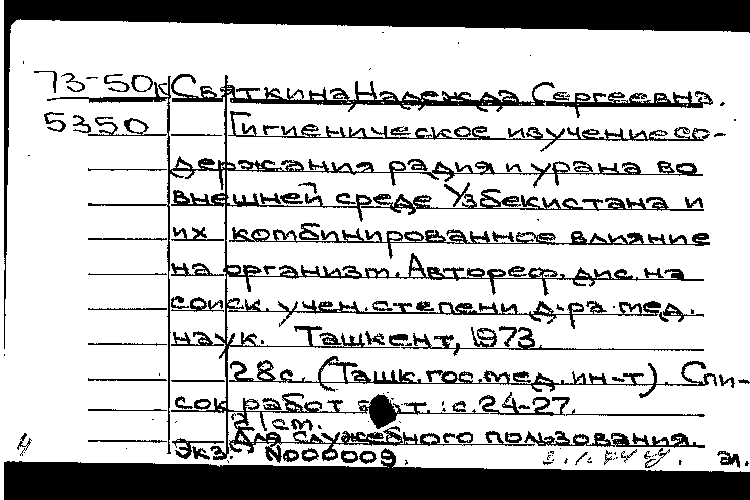 73-50к Святкина, Надежда Сергеевна.
5350 Гигиеническое изучение со-
держания радия и урана во
внешней среде Узбекистана и
их комбинированное влияние
на организм. Автореф. дис. на
соиск. учен. степени д-ра мед.
наук. Ташкент, 1973.
28с. (Ташк. гос. мед. ин-т). Спи-
сок работ авт.: с. 24-27.
Для служебного пользования.
Экз. N000009.